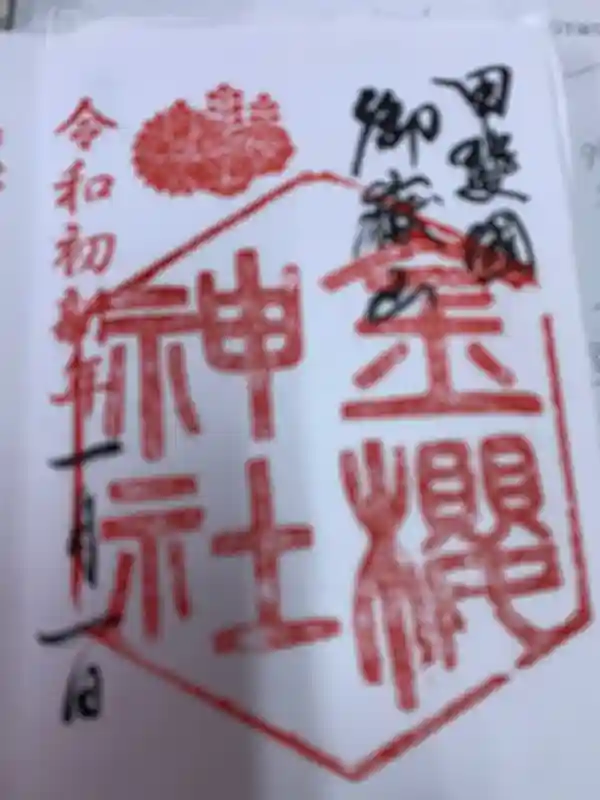 甲斐國
御嶽山
金櫻
神社
令和初新年
一月一日